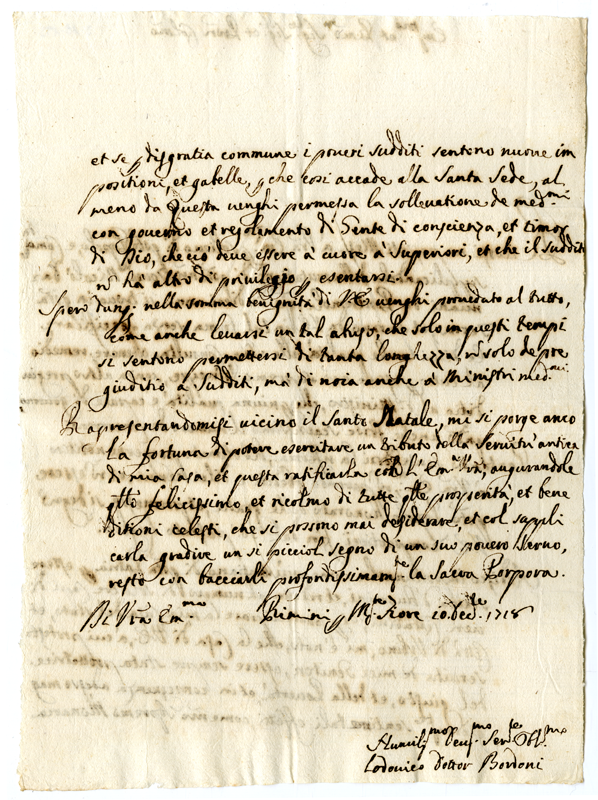 et se p disgratia commune i poveri sudditi sentono nuove im
positioni, et gabelle, p che così accade alla Santa Sede, al
meno da questa venghi permessa la sollevatione de med.mi
con governo et regolamento di Gente di conscienza, et timor
di Dio, che ciò deve essere à cuore à Superiori, et che il suddito
nō hà altro di privilegio p esentarsi.
Spero dunq. nella somma benignità di V.E. venghi proveduto al tutto,
come anche levarsi un tal abuso, che solo in questi tempi
si sentono permettersi di tanta longhezza, nō solo de pre
giuditio à sudditi, mà di noia anche à Ministri med.mi
Rapresentandomisi vicino il Santo Natale, mi si porge anco
la fortuna di potere esercitare un tributo della servitù antica
di mia Casa, et questa ratificarla con l'Em. Vrā; augurandole
q.sto felicissimo, et ricolmo di tutte q.lle prosperità, et bene
ditioni celesti, che si possono mai desiderare, et col suppli
carla gradire un sì picciol segno di un suo povero Servo,
resto con bacciarli profondissimam.te la Sacra Porpora.
Di Vrā Em.ma Rimini p M.te Fiore 10 Dec.bre 1718
Humiliss.mo Dev.mo Ser.re Obl.mo
Lodovico Dottor Bordoni